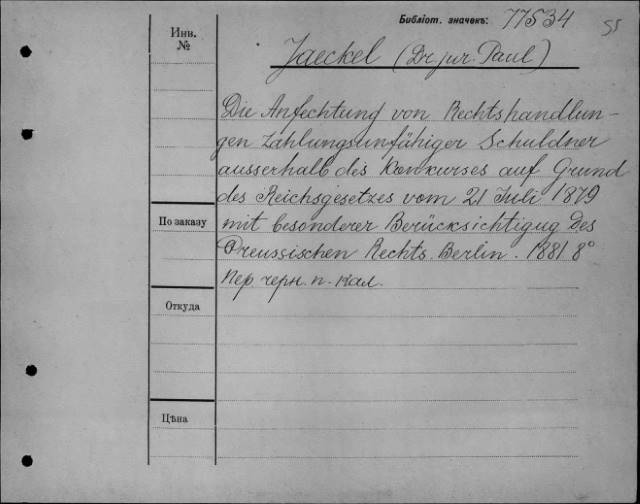 Библіот. значекъ: 77534
55
Инв.
№
Jaeckel (Dr. jur. Paul)
Die Anfechtung von Rechtshandlun-
gen zahlungsunfähiger Schuldner
ausserhalb des Konkurses auf Grund
des Reichsgesetzes vom 21 Juli 1879
По заказу
mit besonderer Berücksichtigug des
Preussischen Rechts. Berlin. 1881 8°
Пер. черн. п. кал.
Откуда
Цѣна